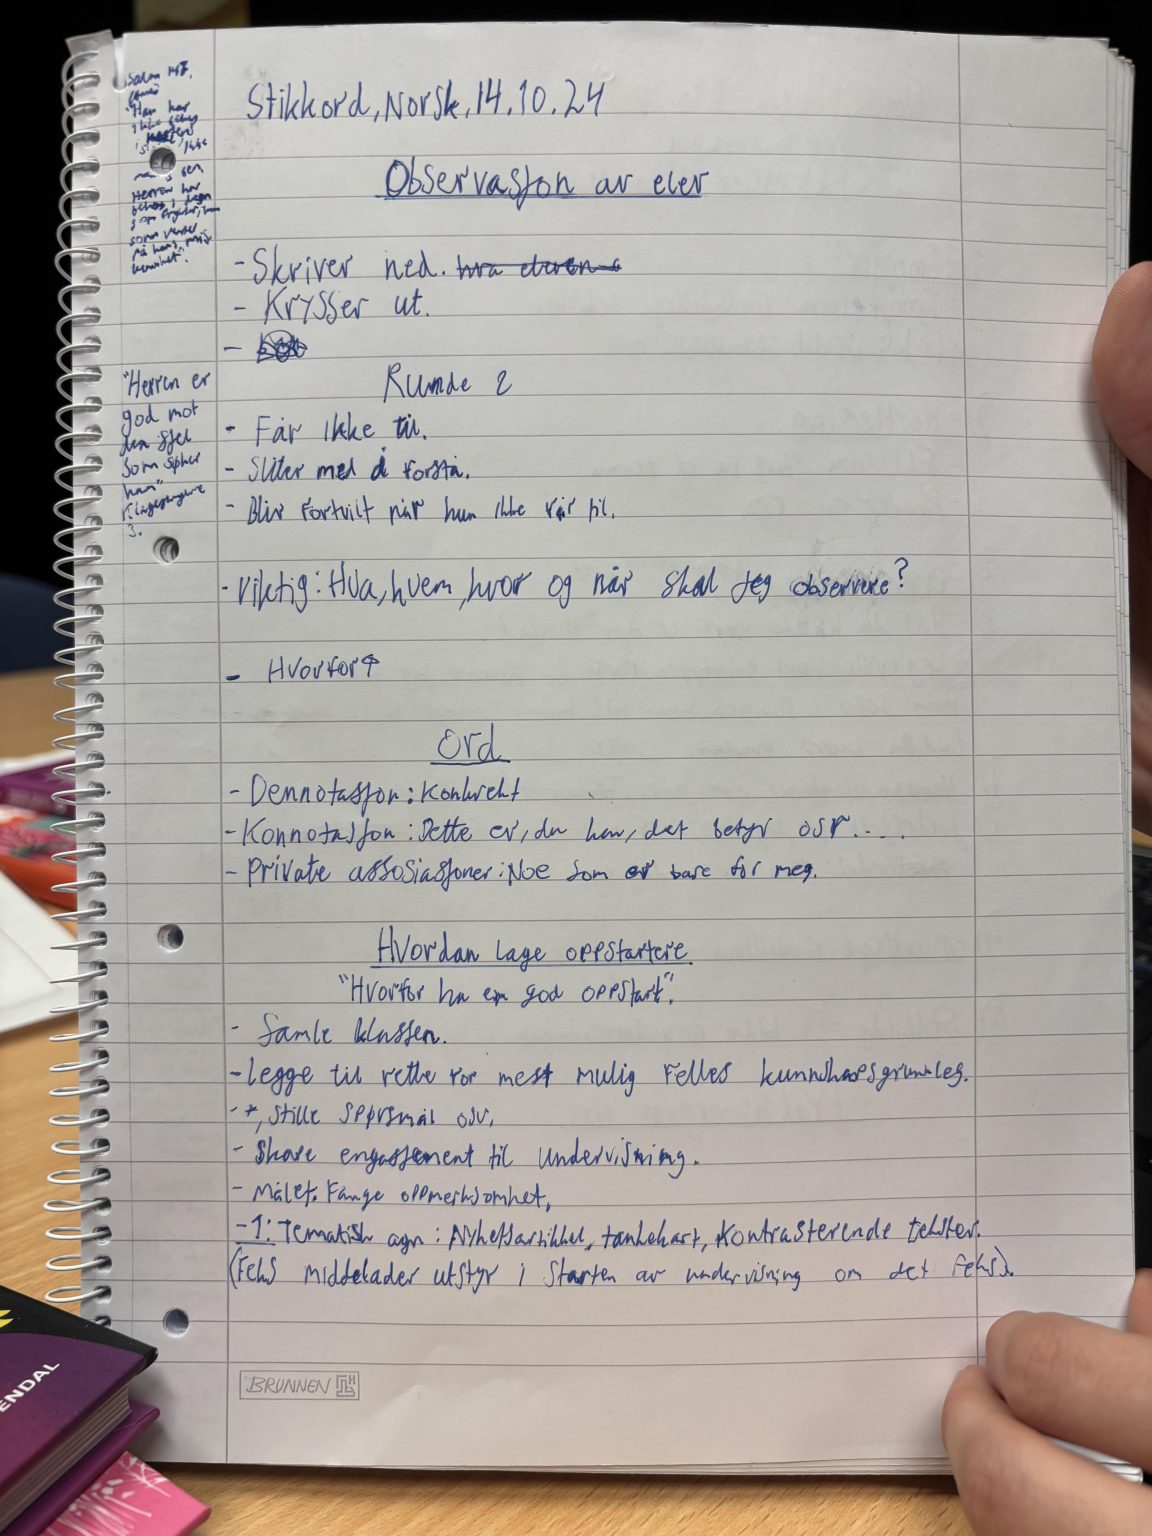 Salme 147.
"Han har
ikke
i
ikke
men
Herren har
behag i dem
som frykter, 
som venter
på hans mis-
kunnhet".
Stikkord, Norsk, 14.10.24
Observasjon av elev
- Skriver ned. hva eleven
- Krysser ut.
-
Runde 2
"Herren er
god mot
den sjel
som søker
han"
Klagesangene
3.
- Får ikke til.
- Sliter med å forstå.
- Blir fortvilt når hun ikke får til.
- Viktig: Hva, hvem, hvor og når skal jeg observere?
- Hvorfor?
Ord
- Dennotasjon: Konkret
- Konnotasjon: Dette er, du har, det betyr osv....
- Private assosiasjoner: Noe som er bare for meg.
Hvordan lage oppstartere
"Hvorfor ha en god oppstart".
- Samle klassen.
- Legge til rette for mest mulig felles kunnskapsgrunnleg.
- *, stille spørsmål osv.
- Skape engasjement til undervisning.
- Målet: Fange oppmerksomhet.
- 1: Tematisk agn: Nyhetsartikkel, tankekart, kontrasterende tekster.
(Feks middelader utstyr i starten av undervisning om det feks).
BRUNNEN
ENDAL